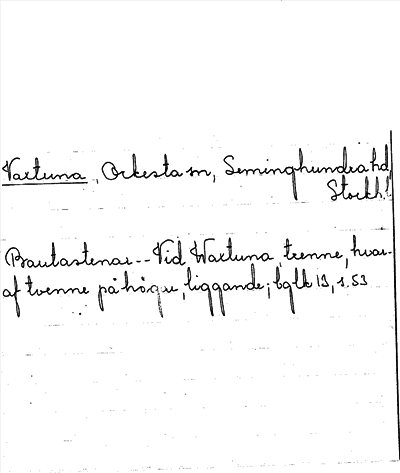 Vaxtuna, Orkesta sn, Seminghundra hd,
Stockh. l
Bautastenar -- Vid Waxtuna, trenne, hvar-
af tvenne på högar, liggande; bglk 19, 1.53